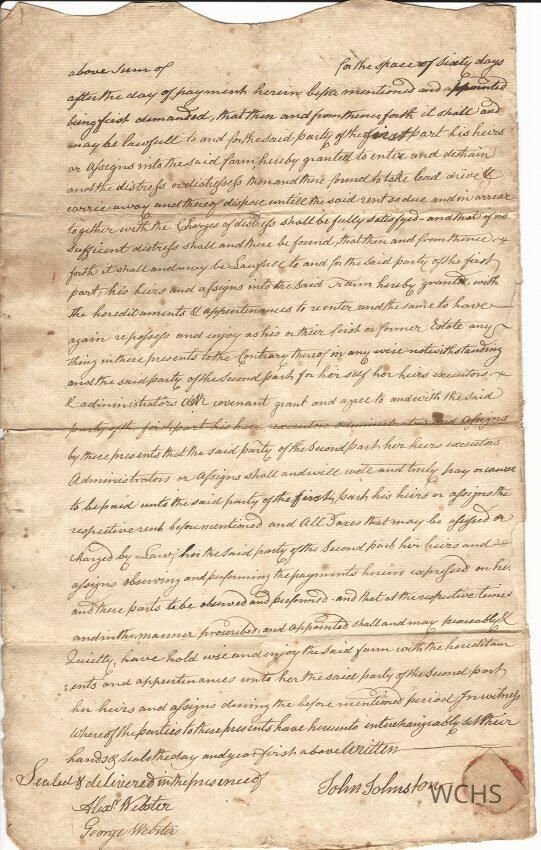 above Sum of for the space of sixty days
after the day of payment herein before mentioned and appointed
being first demanded, that then and from thence forth it shall and
may be lawfull to and for the said party of the first part his heirs
or assigns into the said farm hereby granted to enter and distrain
and the distress or distresses then and there found to take lead drive &
carrie away and thereof dispose untill the said rent so due and in arrear
together with the Charges of distress shall be fully satisfyed and that if no
sufficient distress shall and there be found, that then and from thence
forth it shall and may be Lawfull to and for the said party of the first
part, his heirs and assigns into the said Farm hereby granted, with
the hereditaments & appertenances to reinter and the same to have
again repossess and enjoy as his or their first or former Estate any
thing in these presents to the Contrary thereof in any wise notwithstanding
and the said party of the Second part for her self her heirs executors
& administrators doth covenant grant and agree to and with the said
party of the first part his heirs executors administrators and Assigns
by these presents that the said party of the Second part her heirs executors
Administrators or Assigns shall and will well and truly pay or cause
to be paid unto the said party of the first part his heirs or assigns the
respective rent before mentioned and All Taxes that may be assessed or
charged by Law, her the said party of the Second part her heirs and
assigns observing and performing the payments herein expressed on her
and there parts to be observed and performed and that at the respective times
and in the manner proscribed, and appointed shall and may peaceably &
Quietly, have hold use and enjoy the said farm with the hereditam
ents and appertenances unto her the said party of the Second part
her heirs and assigns during the before mentioned period In witness
Whereof the parties to these presents have hereunto interchangably set their
hands & seals the day and year first above written
Sealed & delivered in the presence of John Johnston
Alexr. Webster
George Webster
WCHS